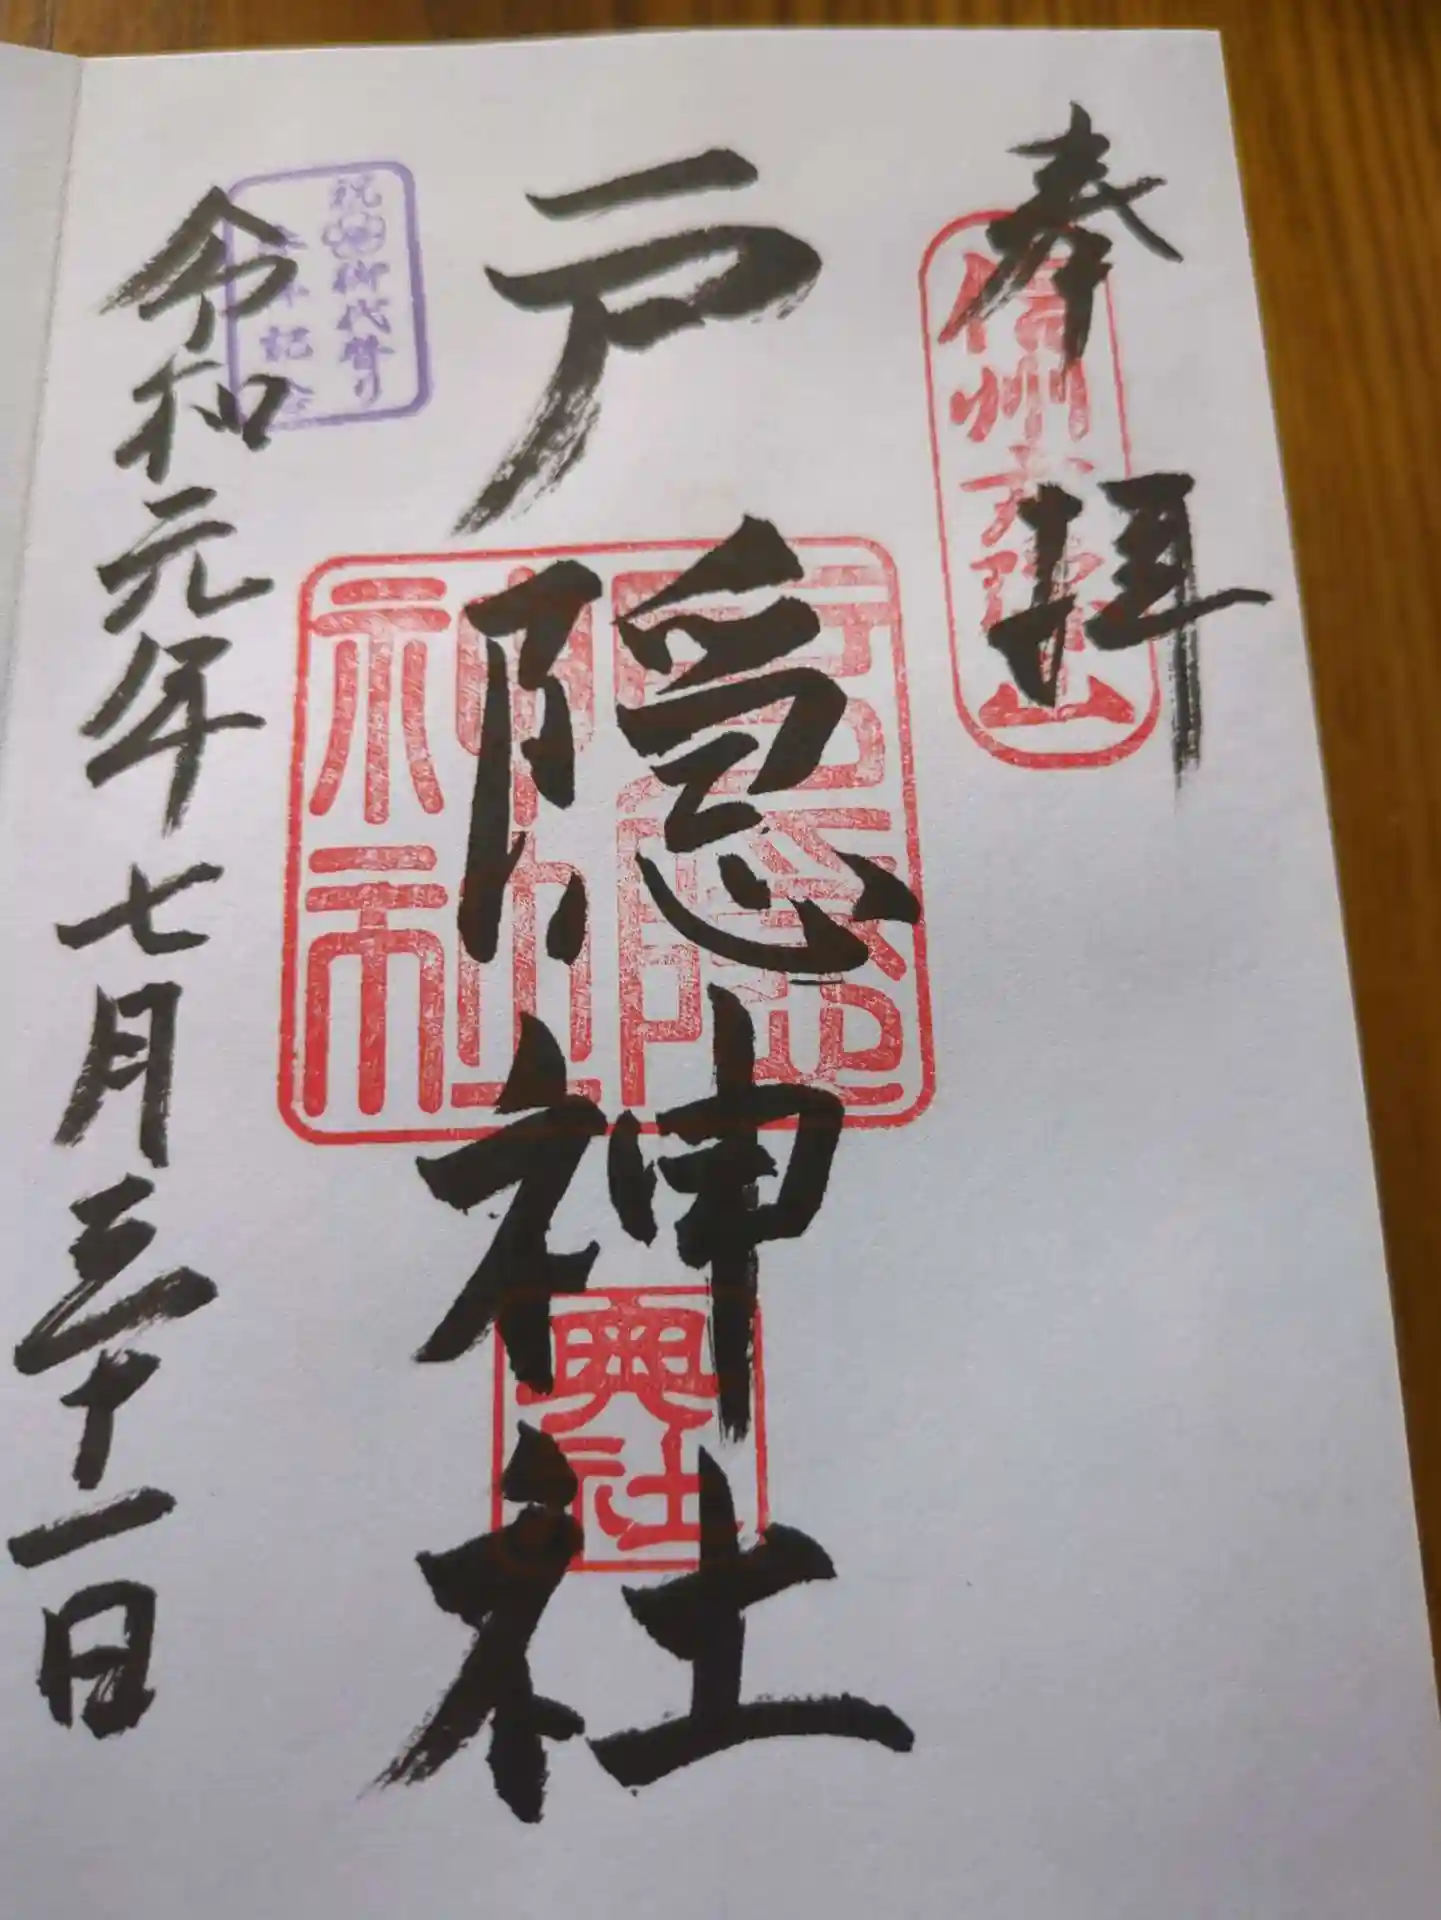 奉拝
信州戸隠山
戸隠神社
戸隠
神社
奥社
祝御代替り
記念
令和元年七月三十一日